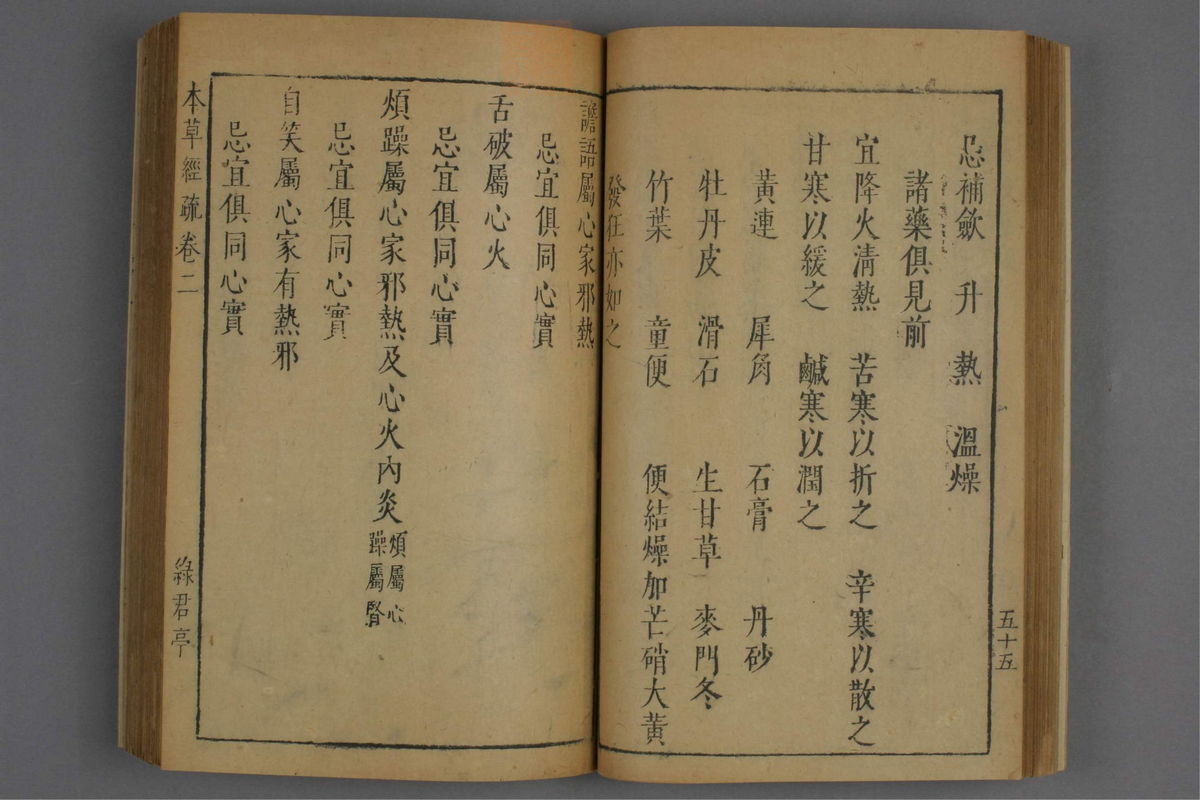 忌補斂　升　熱　溫燥
諸藥俱見前
宜降火淸熱　苦寒以折之　辛寒以散之
甘寒以緩之　鹹寒以潤之
黃連　犀角　石膏　丹砂
牡丹皮　滑石　生甘草　麥門冬
竹葉　童便　便結燥加芒硝大黃
發狂亦如之
五十五
譫語屬心家邪熱
忌宜俱同心實
舌破屬心火
忌宜俱同心實
煩躁屬心家邪熱及心火內炎
煩屬心
躁屬腎
忌宜俱同心實
自笑屬心家有熱邪
忌宜俱同心實
本草經疏卷二
綠君亭